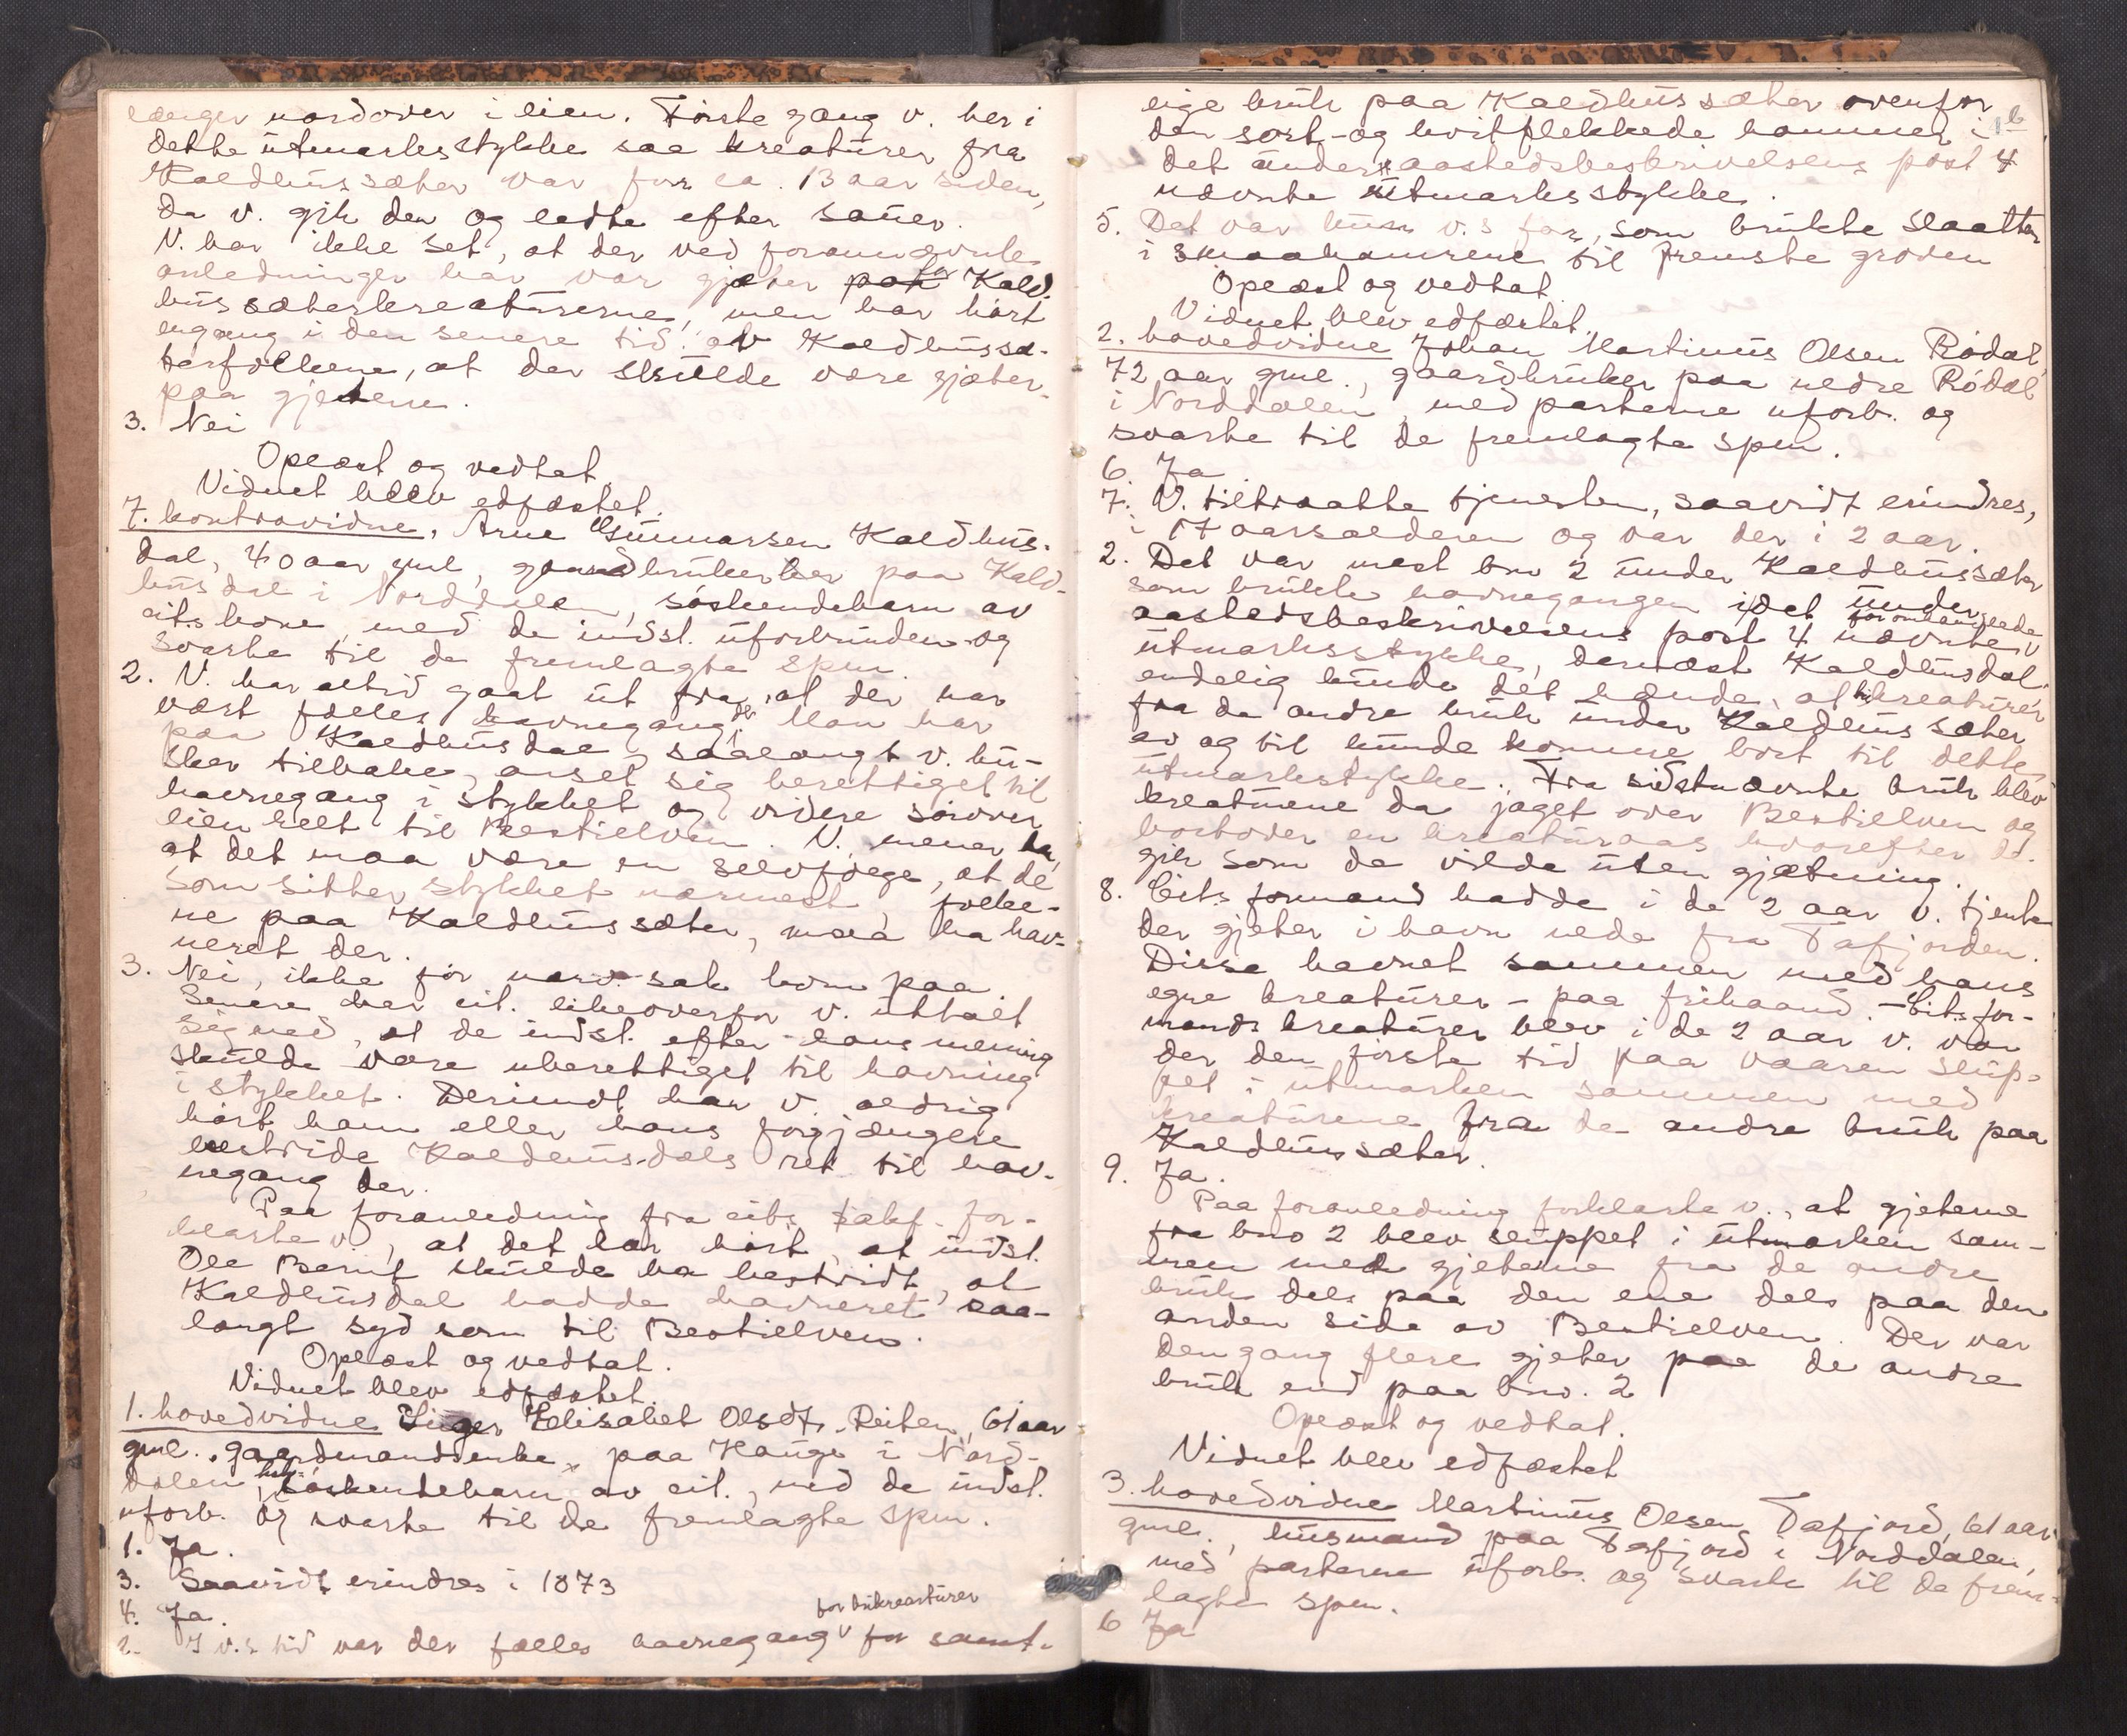 længer nordover i lien. Første gang v. her i
dette utmarksstykke saa kreaturer fra
Kaldhussæter var for ca. 13 aar siden,
da v. gik der og ledte efter sauer.
V. har ikke set, at der ved forannævnte
anledninger har var gjæter for Kald-
hussæterkreaturerne, men har hørt
engang i den senere tid av Kaldhussæ-
terfolkene, at der skulde være gjæter
paa gjetene.
3. Nei
Oplæst og vedtat.
Vidnet blev edfæstet.
7. kontravidne, Arne Gunnarsen Kaldhus-
dal, 40 aar gml, gaardbruker paa Kald-
husdal i Norddalen, søskendebarn av
cits kone, med de indst. uforbunden og
svarte til de fremlagte spm.
2. V. har altid gaat ut fra, at der har
vært fælles havnegang der. Man har
paa Kaldhusdal, saalangt v. hu-
sker tilbake, anset sig berettiget til
havnegang i stykket og videre sørover
lien helt til Bestielven. V. mener da,
at det maa være en selvfølge, at de
som sitter stykket nærmest, folke-
ne paa Kaldhussæter, maa ha hav-
neret der.
3. Nei, ikke før nærv. sak kom paa.
Senere har cit. likeoverfor v. uttalt
sig med, at de indst. efter hans mening
skulde være uberettiget til havning
i stykket. Derimot har v. aldrig
hørt ham eller hans forgjængere
bestride Kaldhusdals ret til hav-
negang der.
Paa foranledning fra cits sakf. for-
klarte v., at det har hørt, at indst.
Ole Bernt skulde ha bestridt, at
Kaldhusdal hadde havneret saa-
langt syd som til Bestielven.
Oplæst og vedtat.
Vidnet blev edfæstet.
1. hovedvidne Inger Elisabet Olsdt. Reiten, 61 aar
gml. gaardmandsenke paa Hauge i Nord-
dalen, søskendebarn av cit., med de indst.
uforb. og svarte til de fremlagte spm.
1. Ja.
3. Saavidt erindres i 1873
4. Ja.
for bukreaturer
2. I v.s tid var der fælles havnegang for samt-
lige bruk paa Kaldhussæter ovenfor
den sort- og hvitflekkede hammer i
det under aastedsbeskrivelsens post 4
nævnte utmarksstykke.
5. Det var kun v.s far, som brukte slaatten
i smaahamrene til fremste groven
Oplæst og vedtat
Vidnet blev edfæstet.
2. hovedvidne Johan Martinus Olsen Rødal,
72 aar gml., gaardbruker paa nedre Rødal
i Norddalen, med parterne uforb. og
svarte til de fremlagte spm.
6. Ja
7. V. tiltraatte tjenesten, saavidt erindres,
i 17 aarsalderen og var der i 2 aar.
2. Det var mest bno 2 under Kaldhussæter
som brukte havnegangen i det under
aastedsbeskrivelsens post 4 nævnte
utmarksstykke, dernæst Kaldhusdal,
endelig kunde det hænde, at kreaturer
fra de andre bruk under Kaldhussæter
av og til kunde komme bort til dette
utmarkstykke. Fra sidstnævnte bruk blev
kreaturene da jaget over Bestielven og
bortover en kreaturaas hvorefter de
gik som de vilde uten gjætning.
8. Cits formand hadde i de 2 aar v. tjente
der gjeter i havn nede fra Tafjorden.
Disse havnet sammen med hans
egne kreaturer – paa frihaand. – Cits for-
mands kreaturer blev i de 2 aar v. var
der den første tid paa vaaren slup-
pet i utmarken sammen med
kreaturene fra de andre bruk paa
Kaldhussæter.
9. Ja.
Paa foranledning forklarte v., at gjetene
fra bno 2 blev sluppet i utmarken sam-
men med gjetene fra de andre
bruk dels paa den ene dels paa den
anden side av Bestielven. Der var
dengang flere gjeter paa de andre
bruk end paa bno. 2
Oplæst og vedtat.
Vidnet blev edfæstet
3. hovedvidne Martinus Olsen Tafjord, 61 aar
gml., husmand paa Tafjord i Norddalen,
med parterne uforb. og svarte til de frem-
lagte spm.
6 Ja